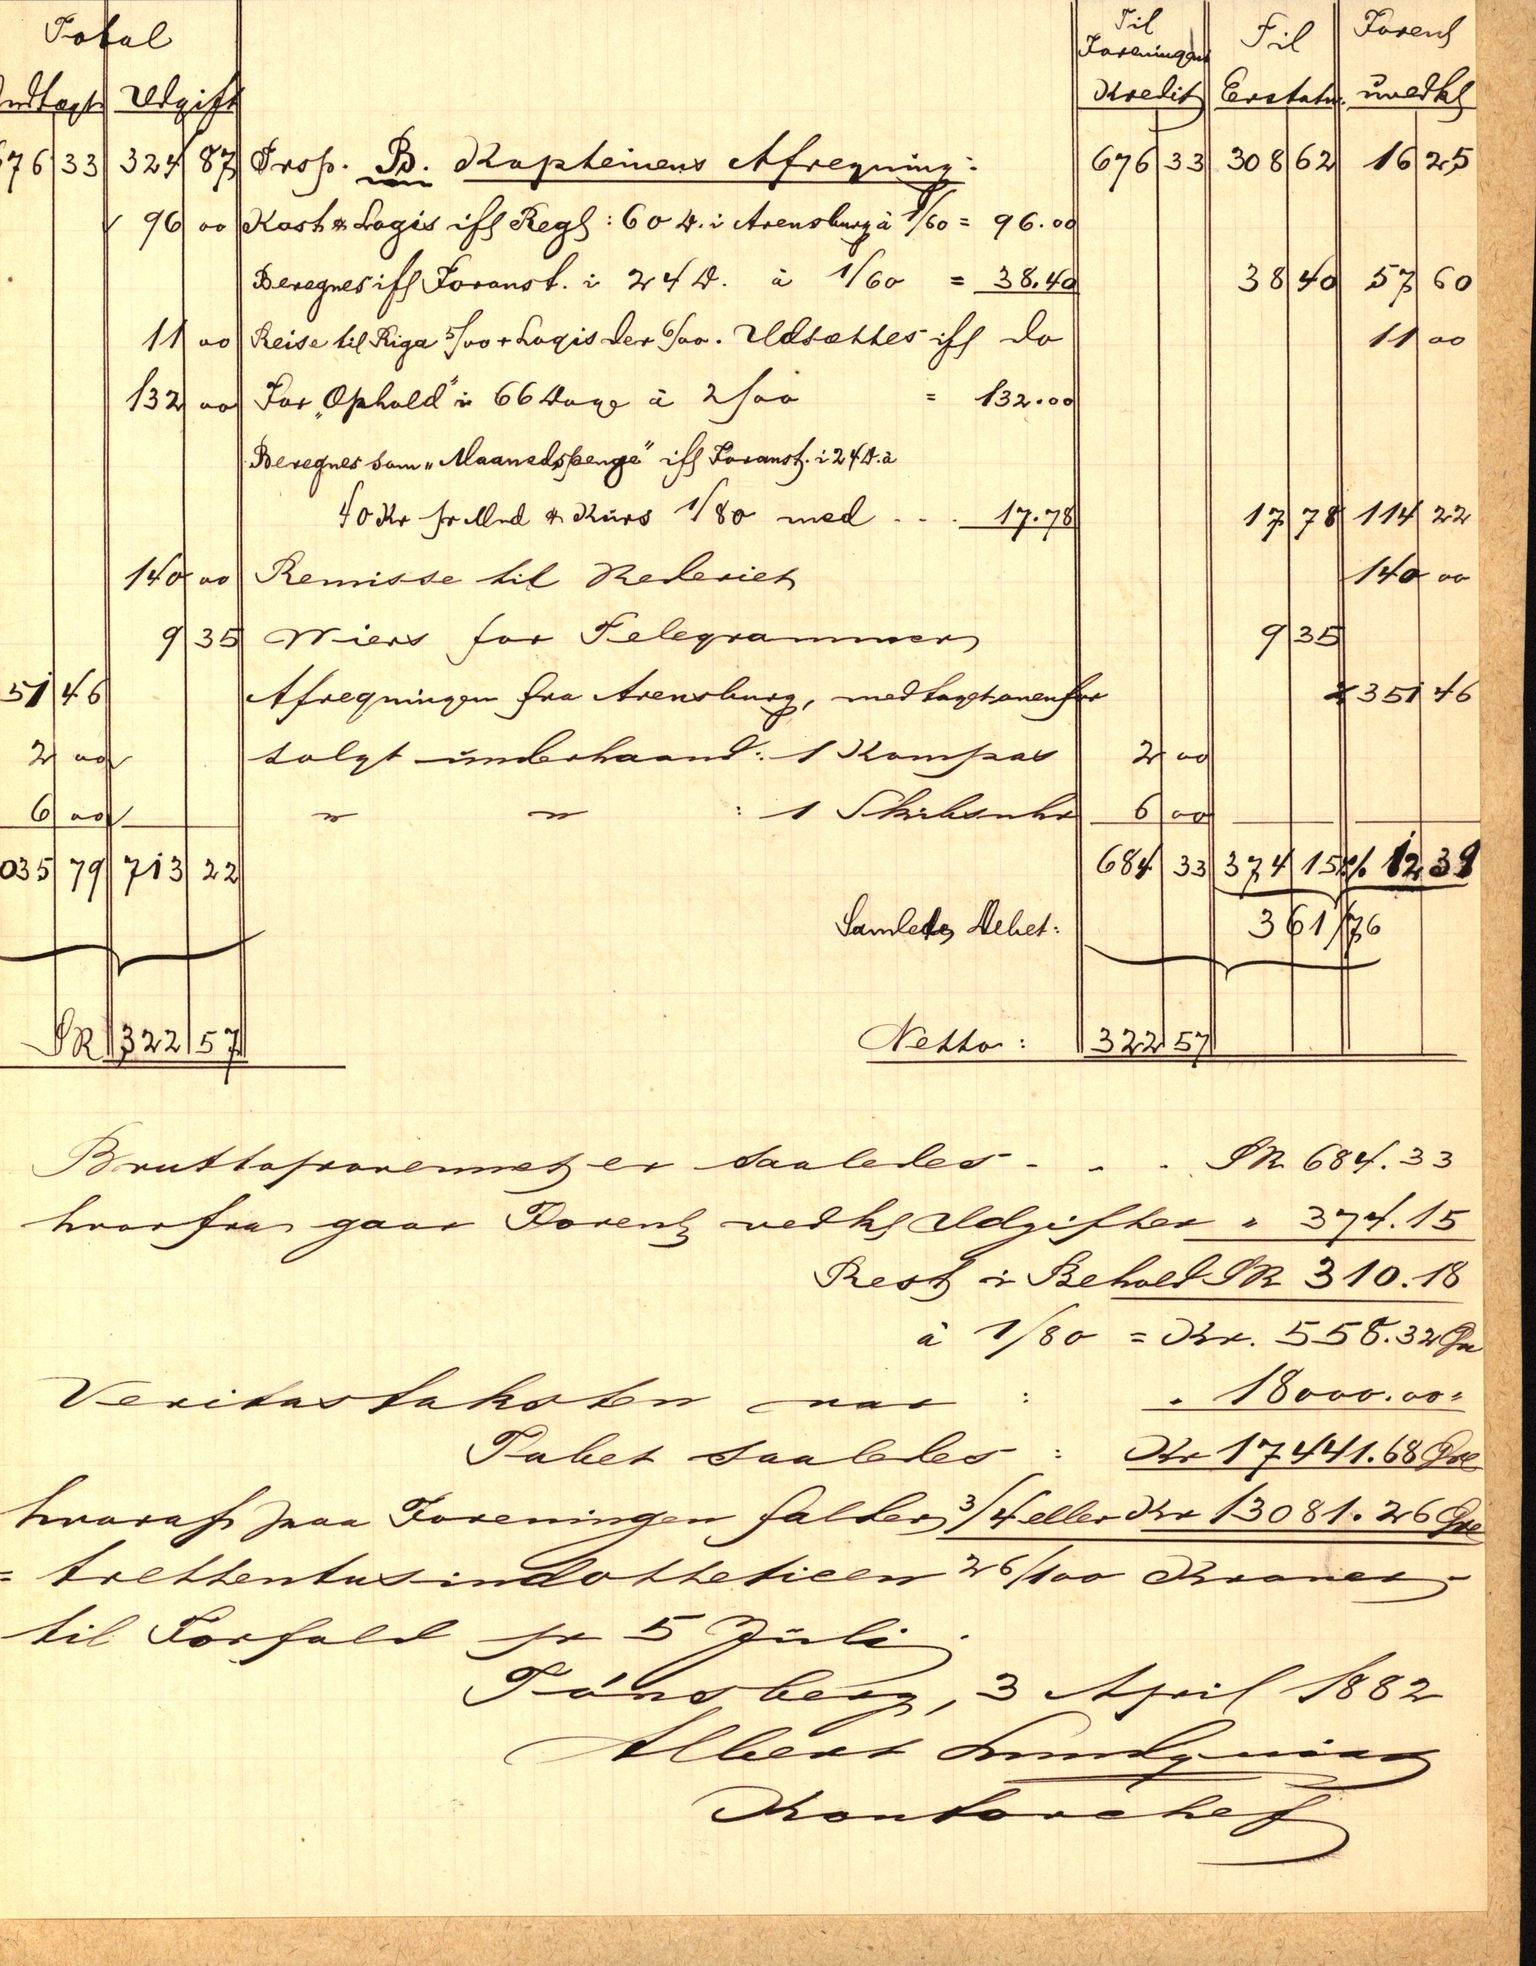 Total Til Til Forens
Foreningens
Indtægt Udgift Kredit Erstatn. uvedk
676 33 324 87 Trsp. B. Kapteinens Afregning: 676 33 308 62 16 25
96 00 Kost & Logis ifl Regl: 60 D. i Arensburg à 1/60 = 96.00
Beregnes ifl Foranst. i 24 D. à 1/60 = 38.40 38 40 57 60
11 00 Reise til Riga 5/00 + Logis der 6/00. Udsættes ifl do 11 00
132 00 For "Ophold" i 66 Dage à 2/00 = 132.00
Beregnes som "Maanedspenge" ifl Foranst. i 24 D. à
40 Kr pr Mnd & Kurs 1/80 med . . . 17.78 17 78 114 22
140 00 Remisse til Rederiet 140 00
9 35 Wiers for Telegrammer 9 35
51 46 Afregningen fra Arensburg, medtaget ovenfor 351 46
2 00 solgt underhaand: 1 Kompas 2 00
6 00 " " : 1 Skibsuhr 6 00
035 79 713 22 684 33 374 15 % 12 39
Samlede Debet: 361/76
SR 322 57 Netto: 322 57
Bruttoprovenuet er saaledes - - - SR 684.33
hvorfra gaar Forens vedk Udgifter " 374.15
Rest i Behold SR 310.18
à 1/80 = Kr. 558.32 Øre
Veritastaksten var : " 18000.00 "
Tabet saaledes : Kr 17441.68 Øre
hvoraf paa Foreningen falder 3/4 eller Kr 13081.26 Øre
= trettentusindottetieen 26/100 Kroner -
til Forfald pr 5 Juli.
Tónsberg, 3 April 1882
Albert Lundquist
Kontorchef